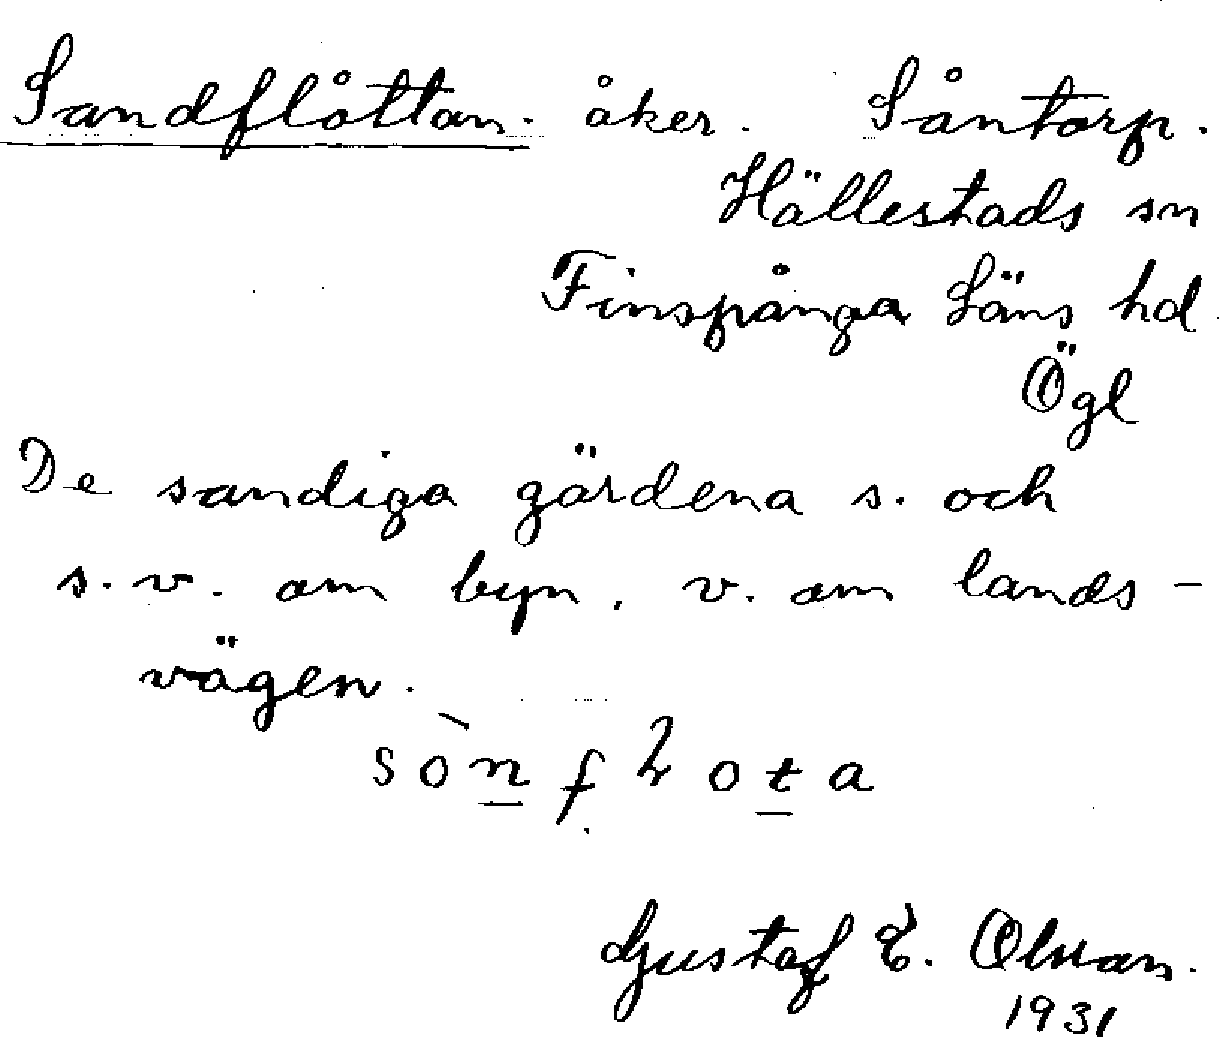 Sandflåttan. åker. Såntorp.
Hällestads sn
Finspånga Läns hd.
Ögl
De sandiga gärdena s. och
s.v. om byn, v. om lands-
vägen.
Gustaf E. Olsson.
1931